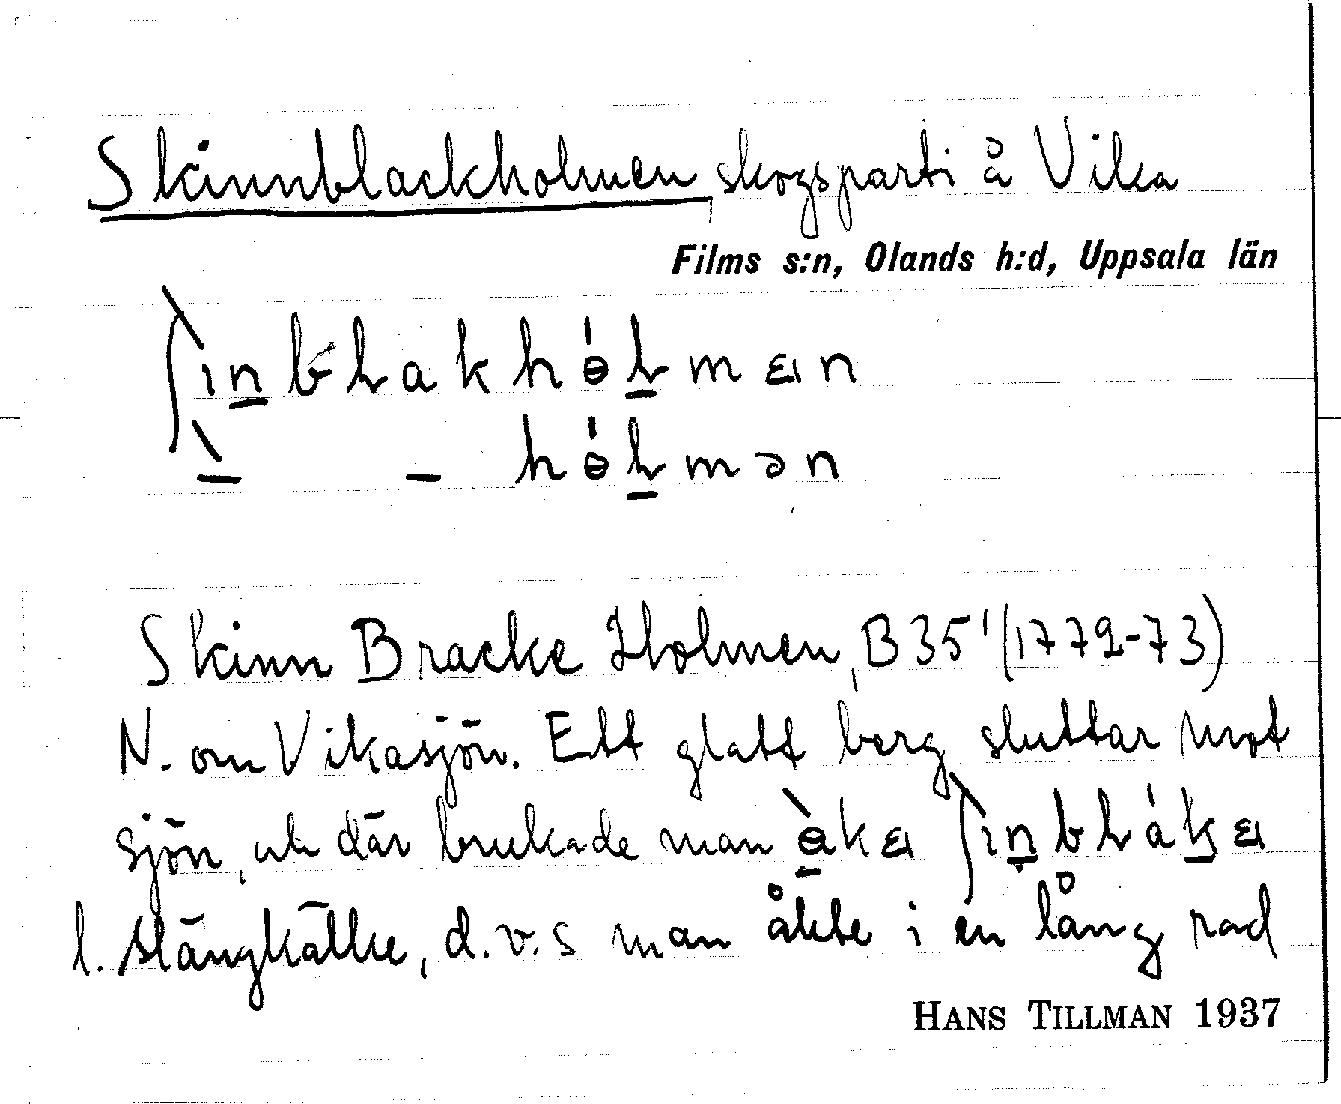 Skinnblackholmen skogsparti å Vika
Films s:n, Olands h:d, Uppsala län
ʃìn̲bɫakhɵ́ɫ̲mɛn
ˋ– – hɵ́ɫ̲mən
Skinn Bracke Holmen, B 35¹ (1772-73)
N. om Vikasjön. Ett glatt berg sluttar mot
sjön, och där brukade man
l. slängkälke, d.v.s man åkte i en lång rad
HANS TILLMAN 1937